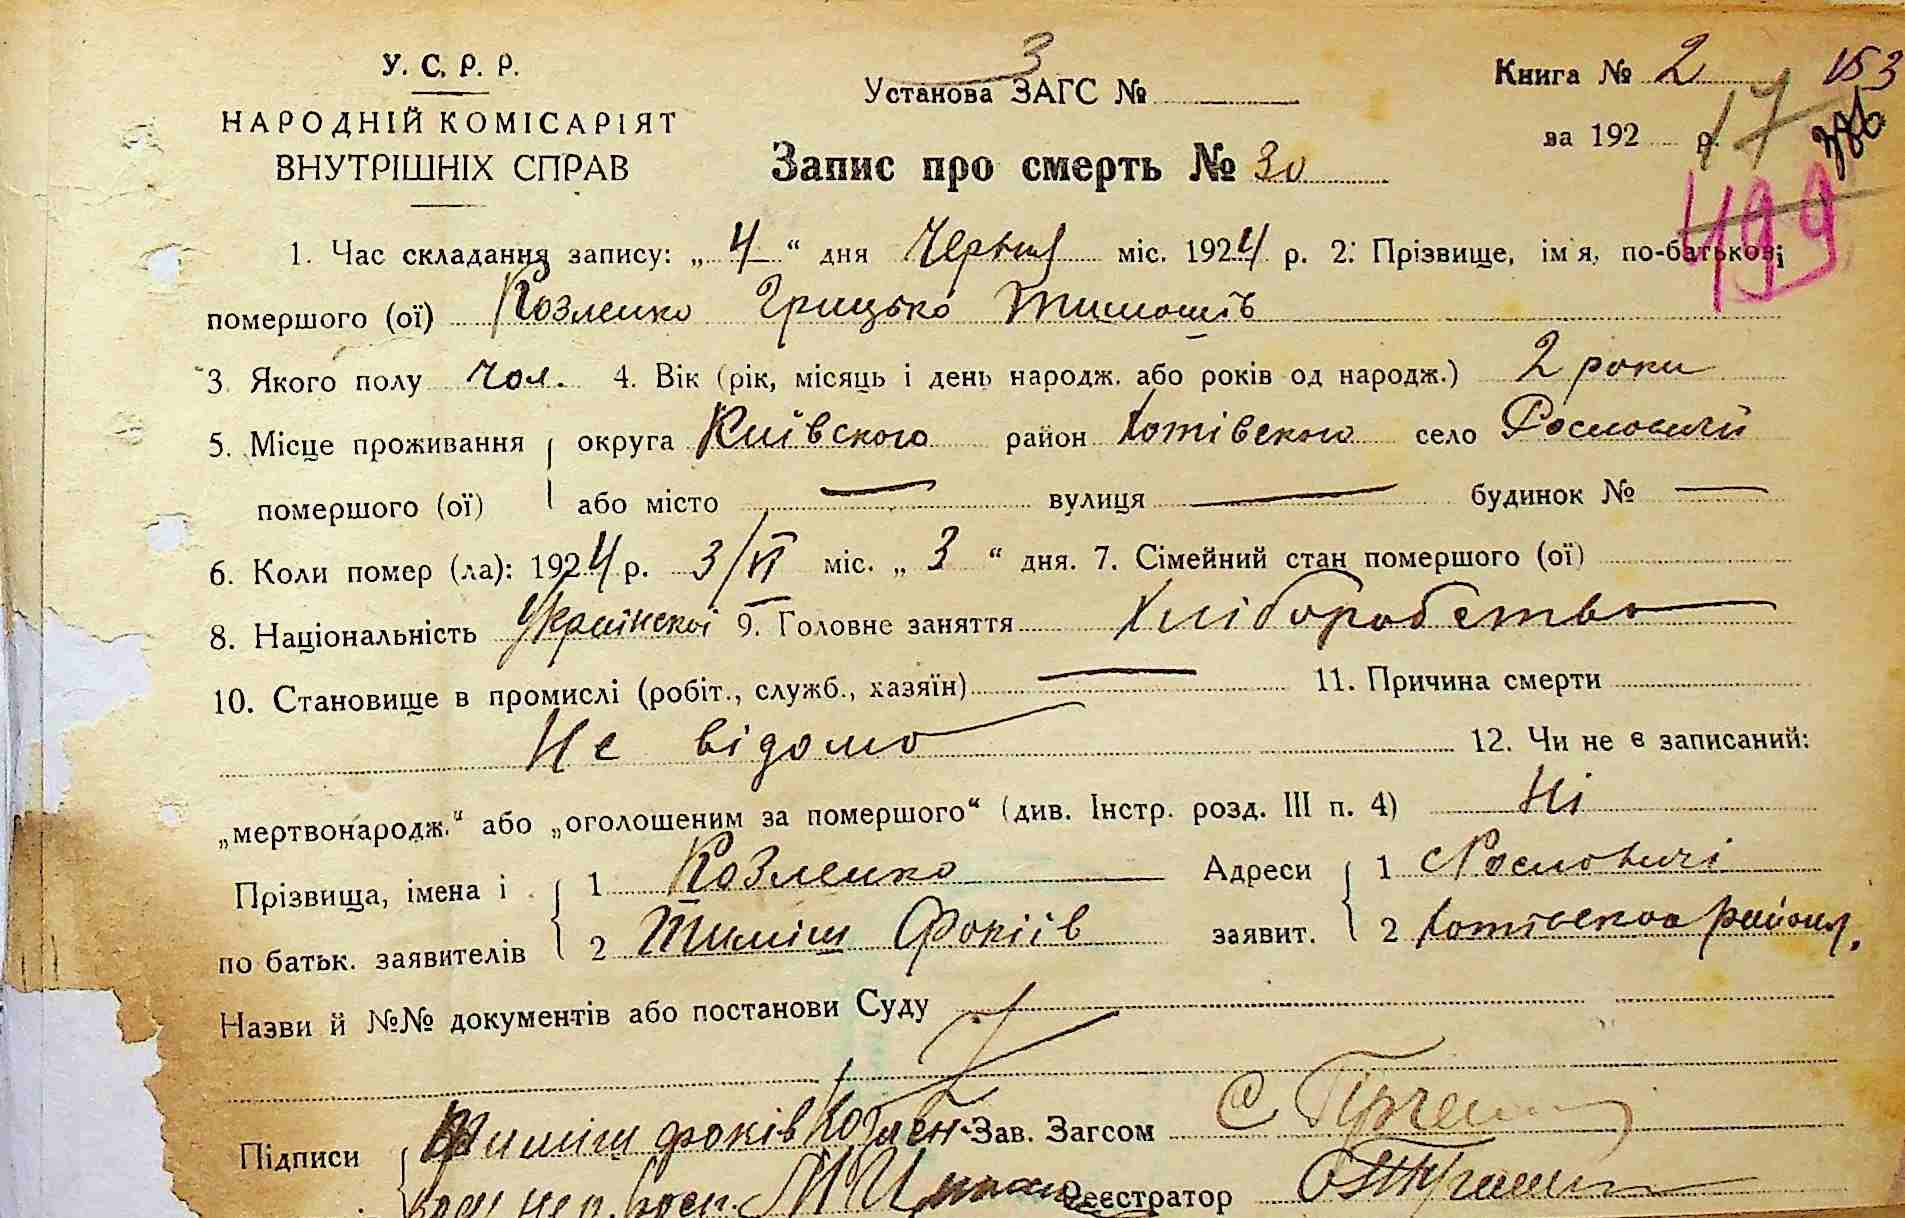 У. С. Р. Р.
НАРОДНІЙ КОМІСАРІЯТ
ВНУТРІШНІХ СПРАВ
Установа ЗАГС № 3
Запис про смерть № 30
Книга № 2 153
за 192 р. 17
499
1. Час складання запису: „ 4 “ дня Червня міс. 1924 р. 2. Прізвище, ім'я, по-батькові
помершого (ої) Козленко Грицько Тимошів
3. Якого полу чол. 4. Вік (рік, місяць і день народж. або років од народж.) 2 роки
5. Місце проживання округа Київского район Хотівского село
помершого (ої) або місто — вулиця — будинок № —
6. Коли помер (ла): 1924 р. 3/VI міс. „ 3 “ дня. 7. Сімейний стан помершого (ої)
8. Національність Українскої 9. Головне заняття Хліборобство
10. Становище в промислі (робіт., служб., хазяїн) — 11. Причина смерти
Не відомо 12. Чи не є записаний:
„мертвонародж.“ або „оголошеним за помершого“ (див. Інстр. розд. III п. 4) Ні
Прізвища, імена і 1 Козленко Адреси 1
по батьк. заявителів 2 Тиміш Фокіів заявит. 2 Хотівского района.
Назви й №№ документів або постанови Суду
Підписи Тиміш фоків Козлен- Зав. Загсом
Реєстратор